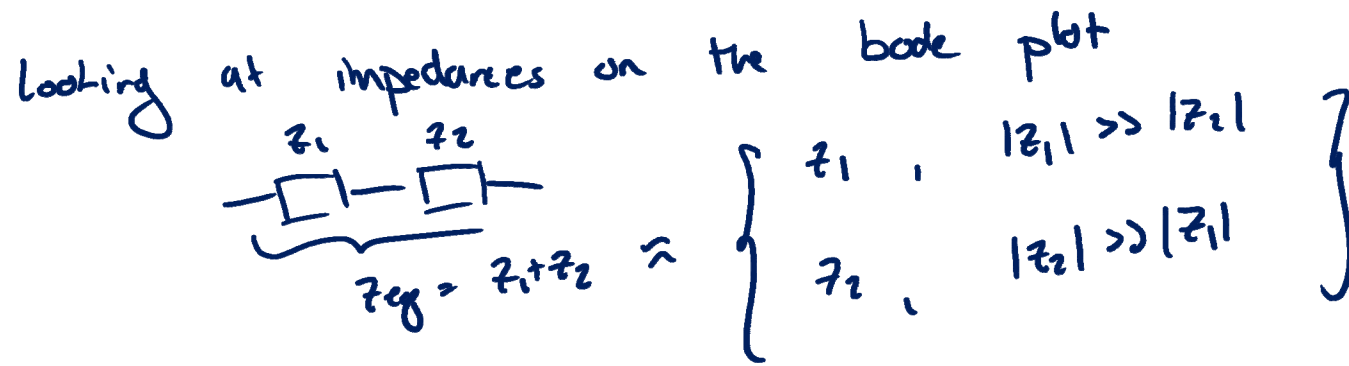 Looking at impedances on the bode plot
Z1 Z2
Zeq = Z1+Z2 ≈ { Z1 , |Z1| >> |Z2|
Z2 , |Z2| >> |Z1| }